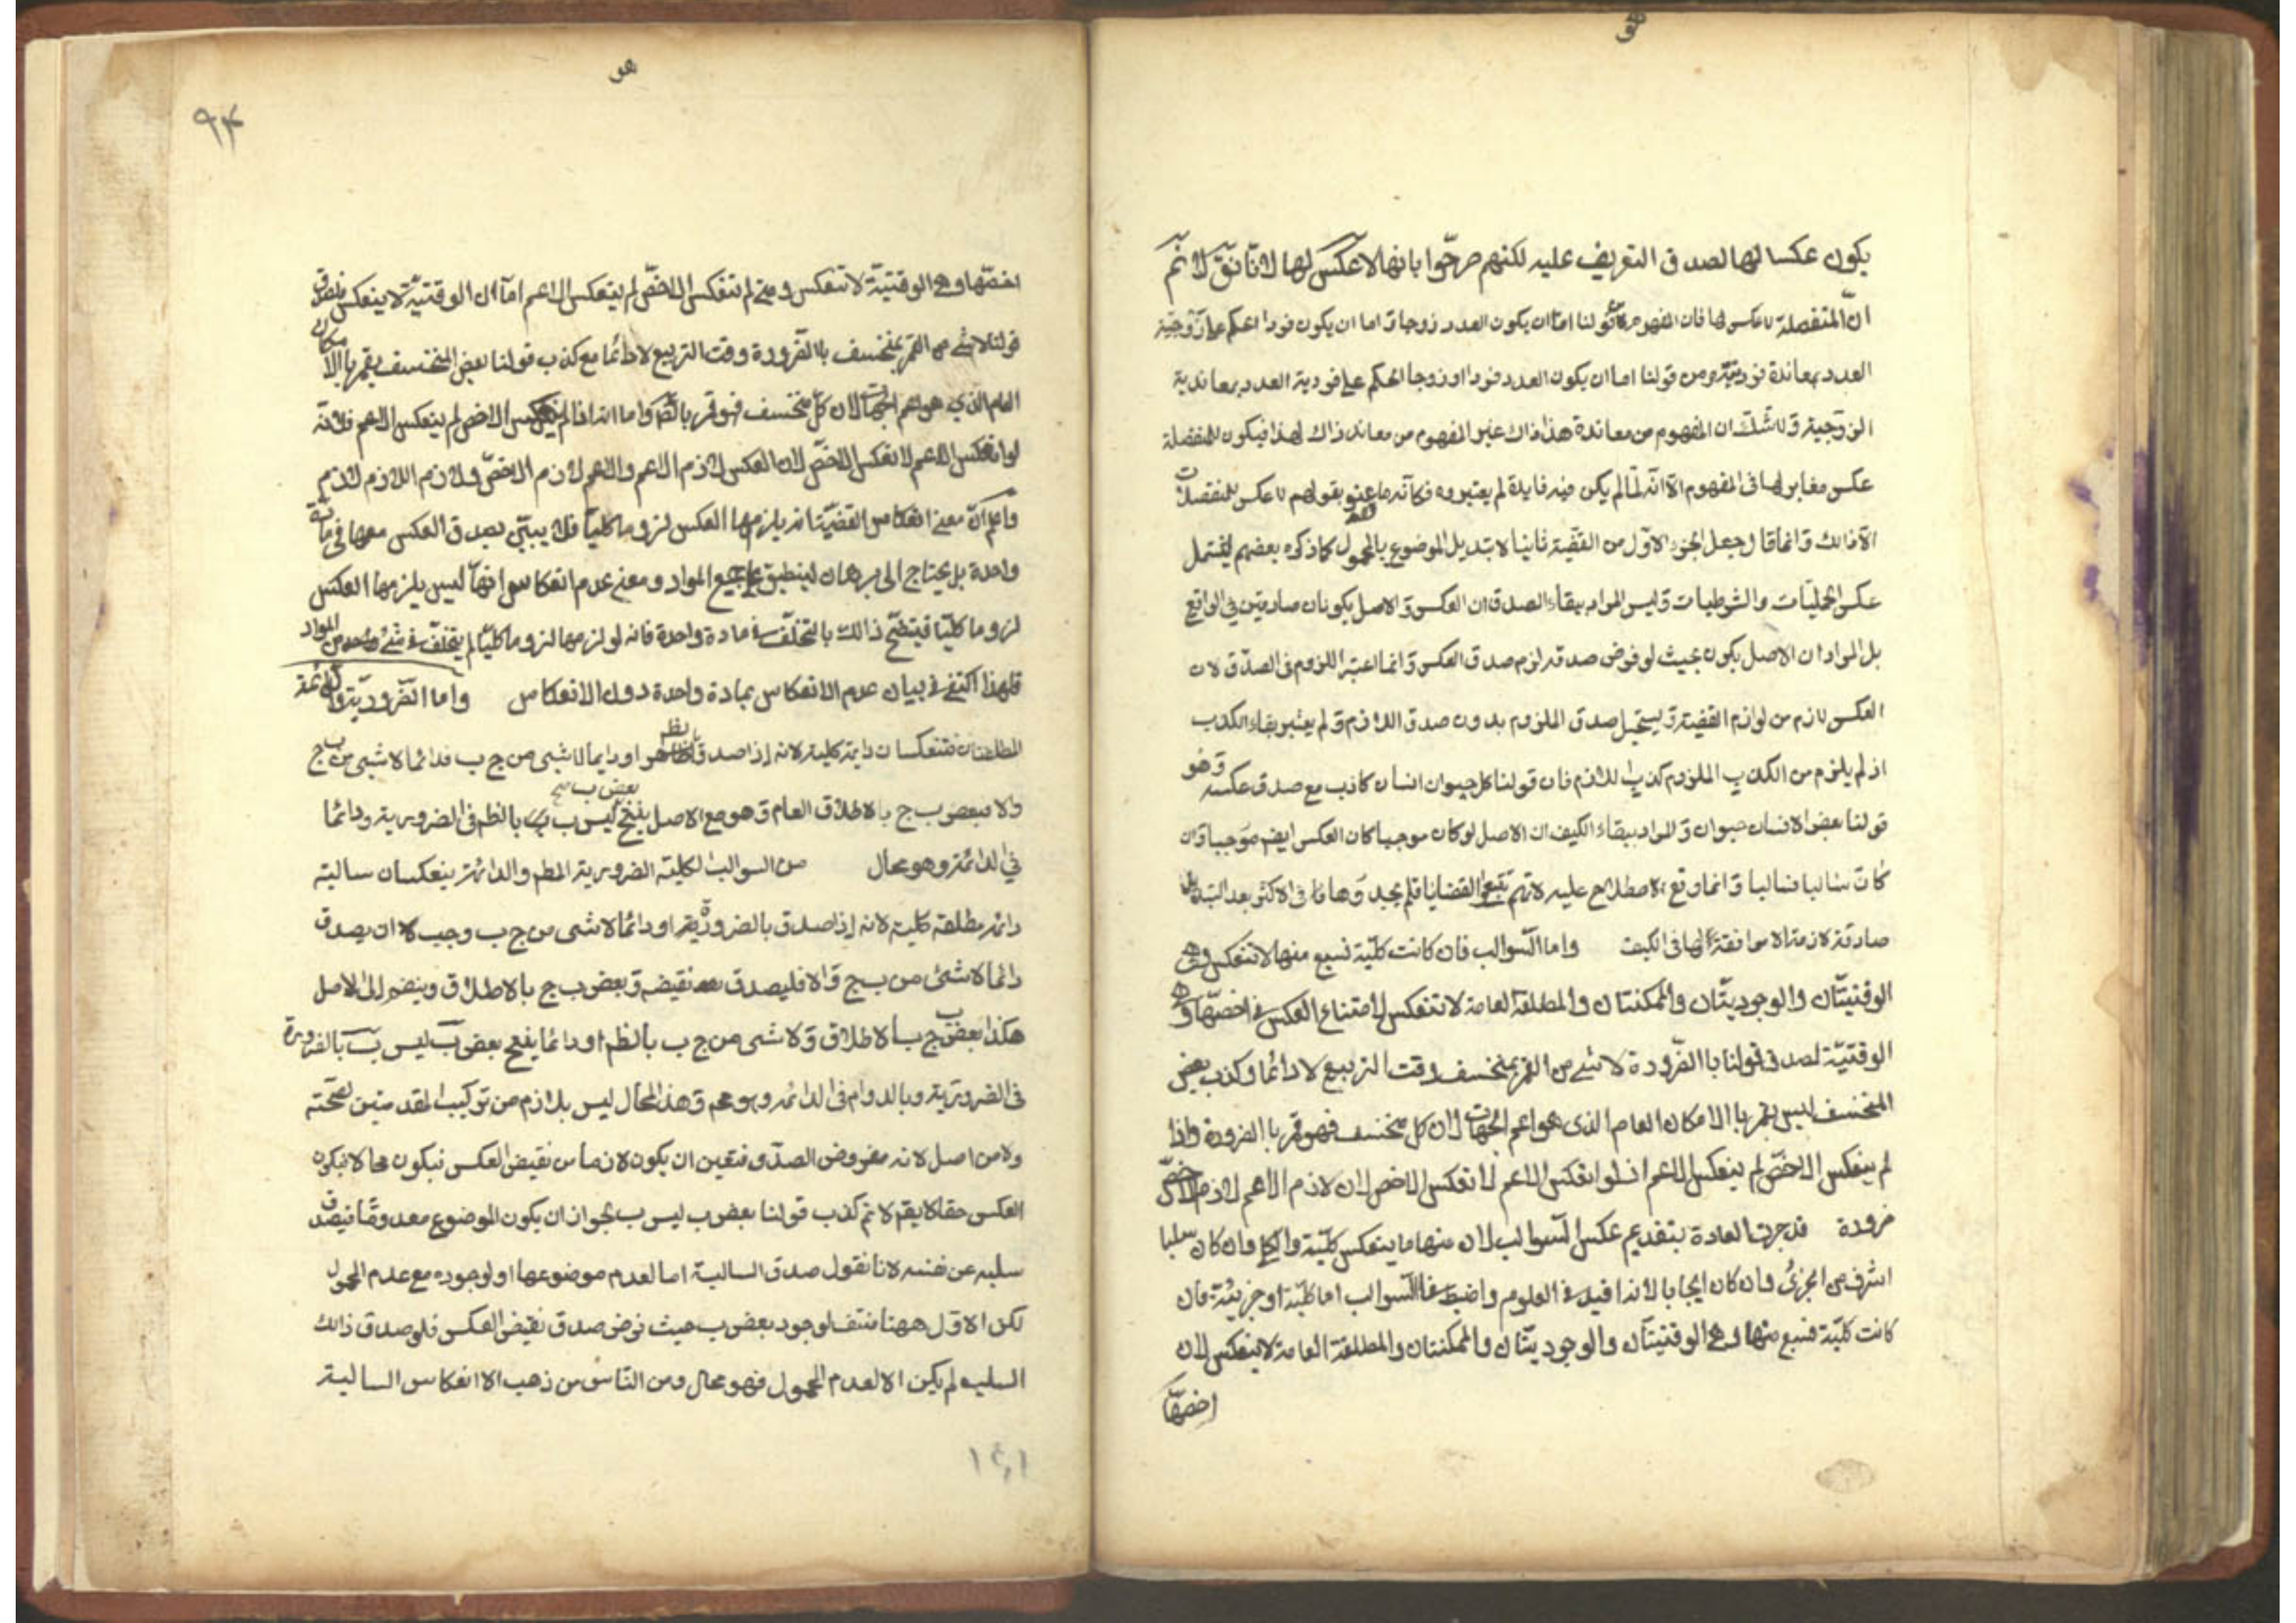 هو
يكون عكسا لها لصدق التعريف عليه لكنهم صرحّوا بانها لا عكس لها لانا نقول لانم
ان المنفصلة لا عكس لها فان المفهوم من قولنا اما ان يكون العدد زوجا و اما ان يكون فردا الحكم على زوجية
العدد بمعاندة فردية و من قولنا اما ان يكون العدد فردا او زوجا الحكم على فردية العدد بمعاندية
الزوجية و لا شك ان المفهوم من معاندة هذا ذاك غير المفهوم من معاندة ذاك لهذا فيكون للمنفصلة
عكس مغاير لها فى المفهوم الا انه لما لم يكن فيه فايدة لم يعتبروه فكأنه ما عنو بقولهم لا عكس للمنفصلات
الا ذالك و انما قال جعل الجزء الاول من القضية ثانيا لا تبديل الموضوع بالمحمول كما ذكره بعضهم ليشتمل
عكس الحمليات والشرطيات و ليس المراد ببقاء الصدق ان العكس و الاصل يكونان صادقين فى الواقع
بل المراد ان الاصل يكون بحيث لو فرض صدقه لزم صدق العكس و انما اعتبر اللزوم فى الصدق لان
العكس لازم من لوازم القضية و يستحيل صدق الملزوم بدون صدق اللازم و لم يعتبر بقاء الكذب
اذ لم يلزم من الكذب الملزوم كذب اللازم فان قولنا كل حيوان انسان كاذب مع صدق عكسه و هو
قولنا بعض الانسان حيوان و المراد ببقاء الكيف ان الاصل لو كان موجبا كان العكس ايضم موجبا و ان
كان سالبا فسالبا و انما وقع الاصطلاح عليه لانهم تتبعوا القضايا فلم يجدوها فى الاكثر بعد التبديل
صادقة لازمة الا موافقة لها فى الكيف واما السوالب فان كانت كلية فسبع منها لا تنعكس و هى
الوقتيتان والوجوديتان والممكنتان والمطلقة العامة لا تنعكس لامتناع العكس فى اخصها و هى
الوقتية لصدق قولنا باالضرورة لا شئ من القمر بمنخسف وقت التربيع لا دائما و كذب بعض
المنخسف ليس بقمر باالامكان العام الذى هو اعم الجهات لان كل منخسف فهو قمر باالضرورة واذا
لم ينعكس الاخص لم ينعكس الاعم اذ لو انعكس الاعم لانعكس الاخص لان لازم الاعم لازم الاخص
ضرورة قد جرت العادة بتقديم عكس السوالب لان منها ما ينعكس كلية والكلى وان كان سلبا
اشرف من الجزئ وان كان ايجابا لانه افيد فى العلوم واضبط فاالسوالب اما كلية او جزئية فان
كانت كلية فسبع منها و هى الوقتيتان والوجوديتان والممكنتان والمطلقة العامة لا ينعكس لان
اخصها
هو
٩٤
اخصها و هى الوقتية لا تنعكس و متى لم تنعكس الاخص لم ينعكس الاعم اما ان الوقتية لا ينعكس فلصدق
قولنا لا شئ من القمر بمنخسف باالضرورة وقت التربيع لا دائما مع كذب قولنا بعض المنخسف بقمر باالامكان
العام الذى هو اعم الجهات لان كل منخسف فهو قمر بالضم و اما انه اذا لم ينعكس الاخص لم ينعكس الاعم فلانه
لو انعكس الاعم لانعكس الاخص لان العكس لازم الاعم والاعم لازم الاخص ولازم اللازم لازم
واعلم ان معنى انعكاس القضية انه يلزمها العكس لزوما كليا فلا يتبين بصدق العكس معها فى مادة
واحدة بل يحتاج الى برهان لينطبق على جميع المواد و معنى عدم انعكاسها انها ليس يلزمها العكس
لزوما كليا فيتضح ذالك بالتخلف فى مادة واحدة فانه لو لزمها لزوما كليا لم يتخلف فى شئ من المواد
فلهذا اكتفى فى بيان عدم الانعكاس بمادة واحدة دون الانعكاس واما الضرورية والدائمة
المطلقتان فتنعكسان دايمة كلية لانه اذا صدق او دايما لا شئ من ج ب فدائما لا شئ من ب ج
والا فبعض ب ج بالاطلاق العام و هو مع الاصل ينتج بعض ب ليس ب بالظم فى الضرورية و دائما
فى الدائمة و هو محال من السوالب الكلية الضرورية المطم والدائمة ينعكسان سالبة
دائمة مطلقة كلية لانه اذا صدق بالضرورة او دائما لا شئ من ج ب وجب ان يصدق
دائما لا شئ من ب ج و الا فليصدق نقيضه و بعض ب ج بالاطلاق و ينضم الى الاصل
هكذا بعض ب ج بالاطلاق و لا شئ من ج ب بالظم او دائما ينتج بعض ب ليس ب بالضرورة
فى الضرورية و بالدوام فى الدائمة و هو مح و هذ المحال ليس بلازم من تركيب المقدمتين لصحته
ولا من اصل لانه مفروض الصدق فتعين ان يكون لازما من نقيض العكس فيكون محالا فيكون
العكس حقا لا يقم لا نم كذب قولنا بعض ب ليس ب لجواز ان يكون الموضوع معدوما فيصدق
سلبه عن نفسه لانا نقول صدق السالبة اما لعدم موضوعها او لوجوده مع عدم المحمول
لكن الاول ههنا منتف لوجود بعض ب حيث فرض صدق نقيض العكس فلو صدق ذالك
السلب لم يكن الا لعدم المحمول فهو محال و من الناس من ذهب الا انعكاس السالبة